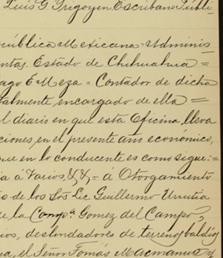 Luis G Yrigoyen Escribano Públi
pública Mexicana = Adminis
ntas Estado de Chihuahua =
ago E Meza = Contador de dicha
almente encargado de ella =
l diario en que esta Oficina lleva
ciones, en el presente año económico,
ue en lo conducente es como sigue: =
a á Varios = á Otorgamiento
o de los Lic Guillermo Urrutia
de la Compª Gomez del Campo,
ios, deslindadores de terrenos baldios
a, el Señor Tomás Macmanus y